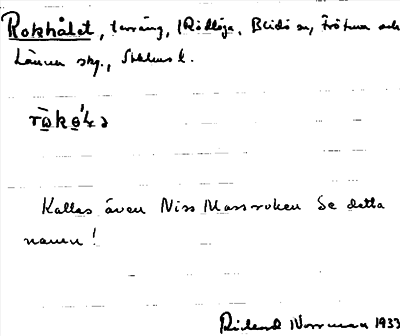 Rokhålet, terräng, i Rödlöga, Blidö sn, Frötuna och
Länna skg., Sthlms l.
Kallas även Niss Massroken Se detta
namn!
Rickard Norrman 1933